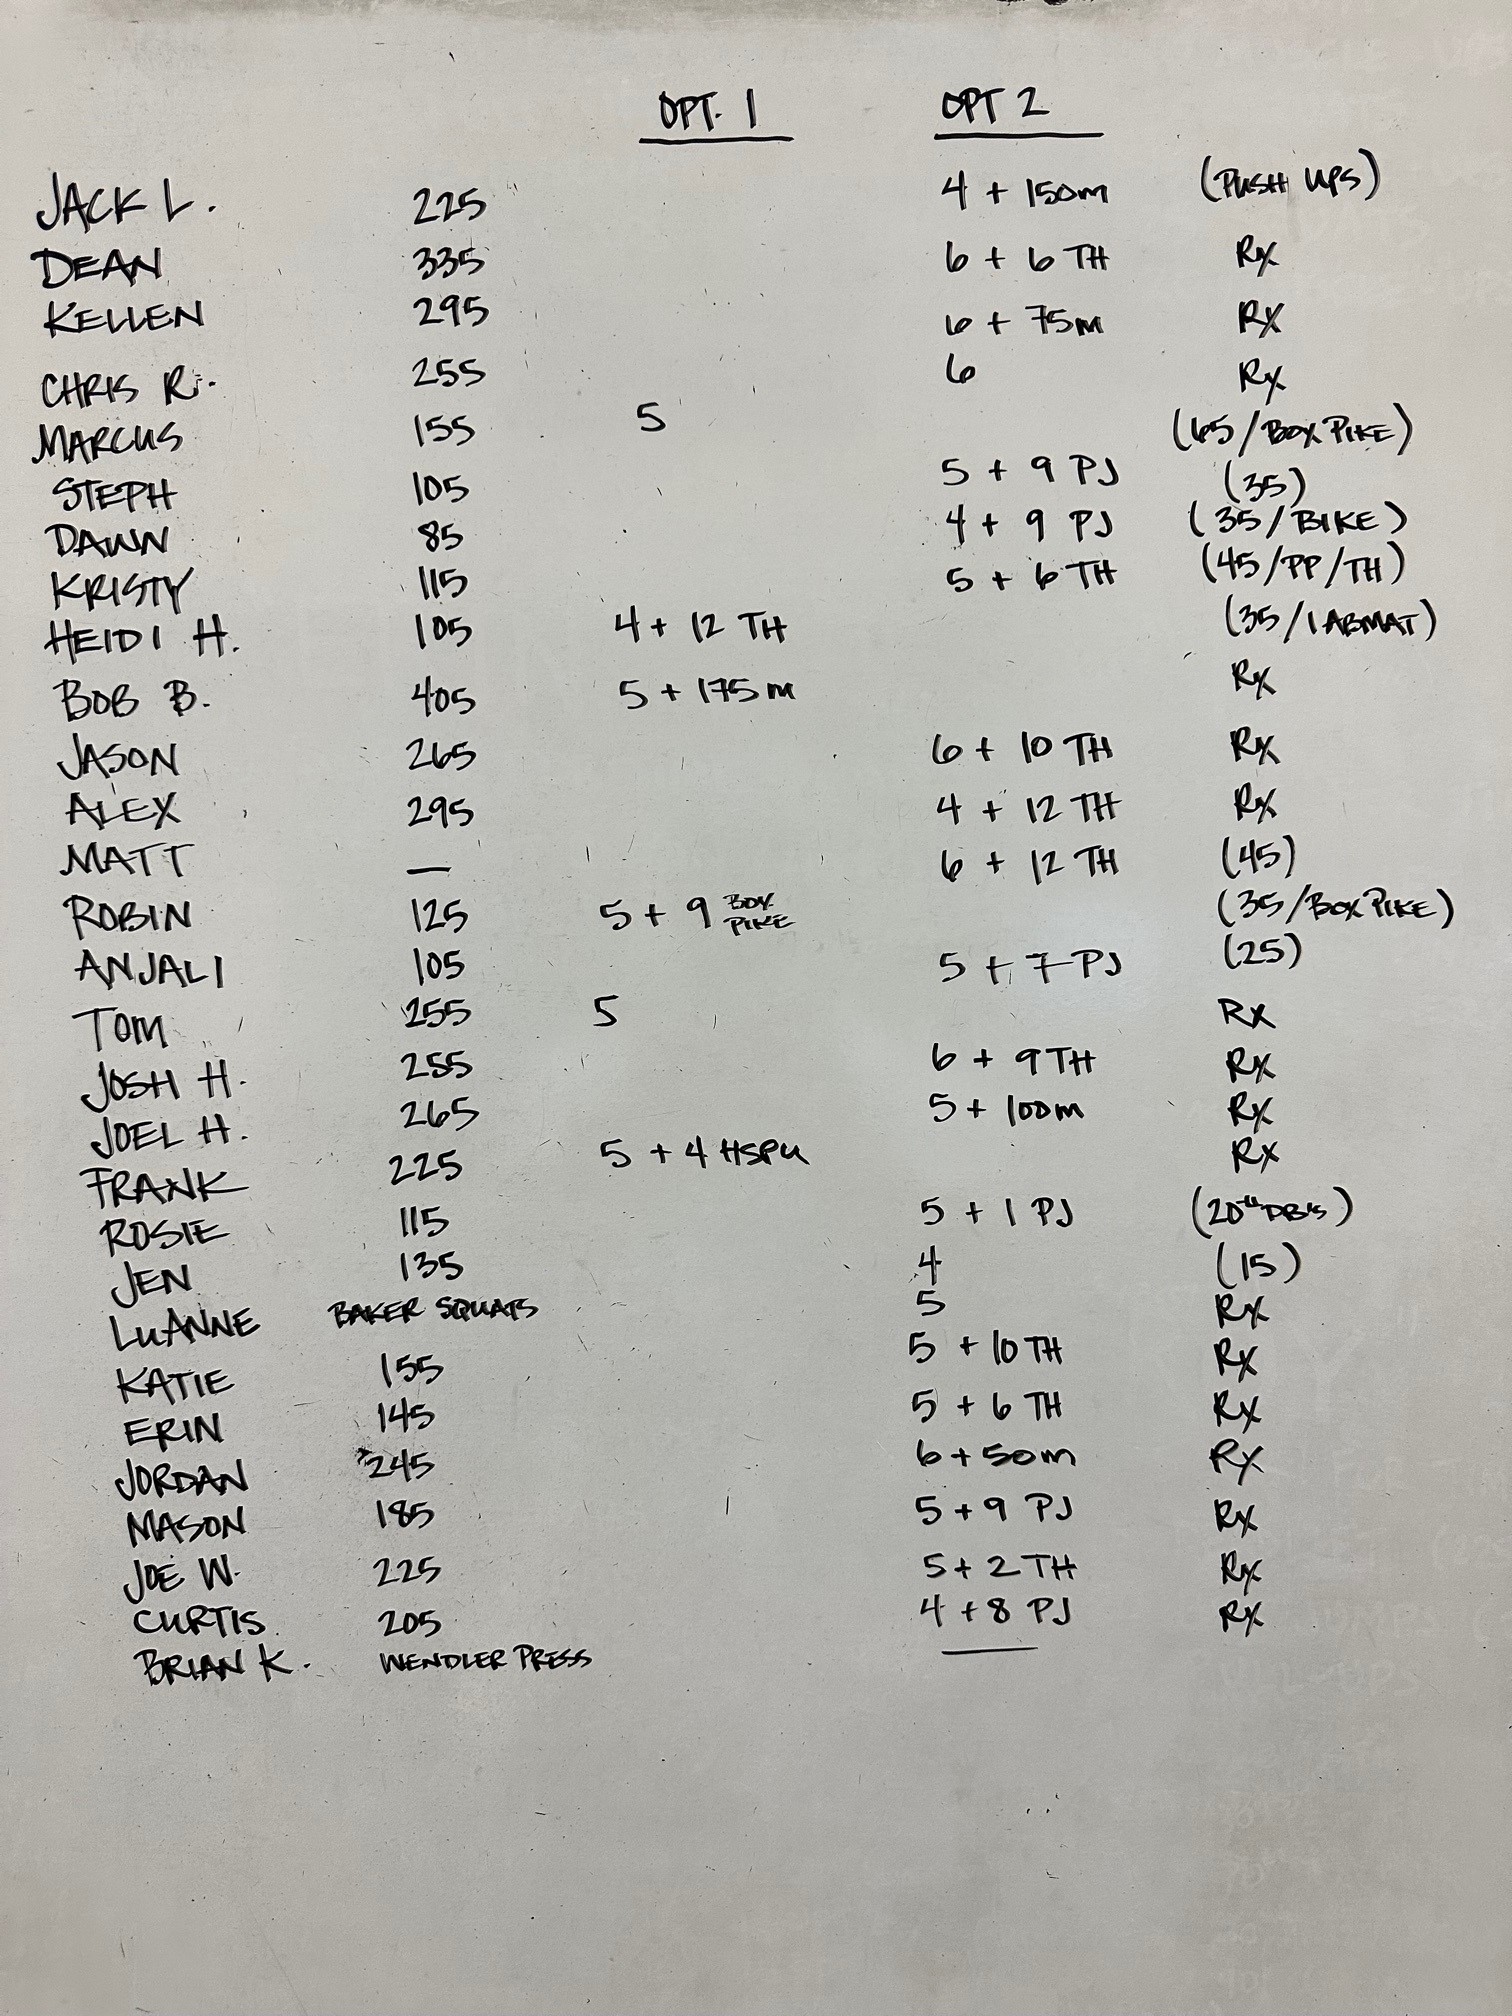 OPT. 1 OPT 2
JACK L. 225 4 + 150m (PUSH UPS)
DEAN 335 6 + 6 TH Rx
KELLEN 295 6 + 75m Rx
CHRIS R. 255 6 Rx
MARCUS 155 5 (65/BOX PIKE)
STEPH 105 5 + 9 PJ (35)
DAWN 85 4 + 9 PJ (35/BIKE)
KRISTY 115 5 + 6 TH (45/PP/TH)
HEIDI H. 105 4 + 12 TH (35/1 ABMAT)
BOB B. 405 5 + 175m Rx
JASON 265 6 + 10 TH Rx
ALEX 295 4 + 12 TH Rx
MATT — 6 + 12 TH (45)
ROBIN 125 5 + 9 BOX PIKE (35/BOX PIKE)
ANJALI 105 5 + 7 PJ (25)
TOM 255 5 Rx
JOSH H. 255 6 + 9 TH Rx
JOEL H. 265 5 + 100m Rx
FRANK 225 5 + 4 HSPU Rx
ROSIE 115 5 + 1 PJ (20# DB's)
JEN 135 4 (15)
LUANNE BAKER SQUATS 5 Rx
KATIE 155 5 + 10 TH Rx
ERIN 145 5 + 6 TH Rx
JORDAN 245 6 + 50m Rx
MASON 185 5 + 9 PJ Rx
JOE W. 225 5 + 2 TH Rx
CURTIS 205 4 + 8 PJ Rx
BRIAN K. WENDLER PRESS —